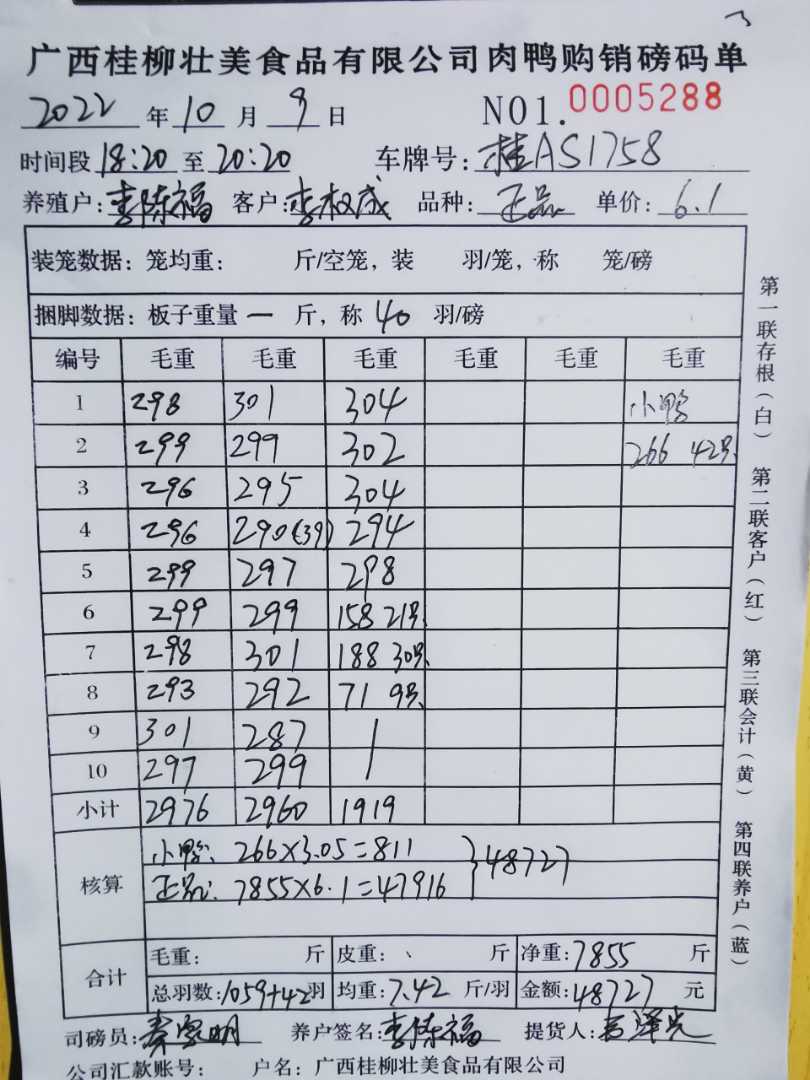 广西桂柳壮美食品有限公司肉鸭购销磅码单
2022 年 10 月 9 日 NO1.0005288
时间段 18:20 至 20:20 车牌号: 桂AS1758
养殖户: 李陈福 客户: 李权成 品种: 正品 单价: 6.1
装笼数据: 笼均重: 斤/空笼, 装 羽/笼, 称 笼/磅
捆脚数据: 板子重量 一 斤, 称 40 羽/磅
编号 毛重 毛重 毛重 毛重 毛重 毛重
1 298 301 304 小鸭
2 299 299 302 266 42号
3 296 295 304
4 296 290(39) 294
5 299 297 298
6 299 299 158 21号
7 298 301 188 30号
8 293 292 71 9号
9 301 287
10 297 299
小计 2976 2960 1919
核算 小鸭: 266×3.05=811
正品: 7855×6.1=47916 }48727
合计 毛重: 斤 皮重: 、 斤 净重: 7855 斤
总羽数: 1059+42羽 均重: 7.42 斤/羽 金额: 48727 元
司磅员: 家明 养户签名: 李陈福 提货人:
公司汇款账号: 户名: 广西桂柳壮美食品有限公司
第一联存根(白) 第二联客户(红) 第三联会计(黄) 第四联养户(蓝)